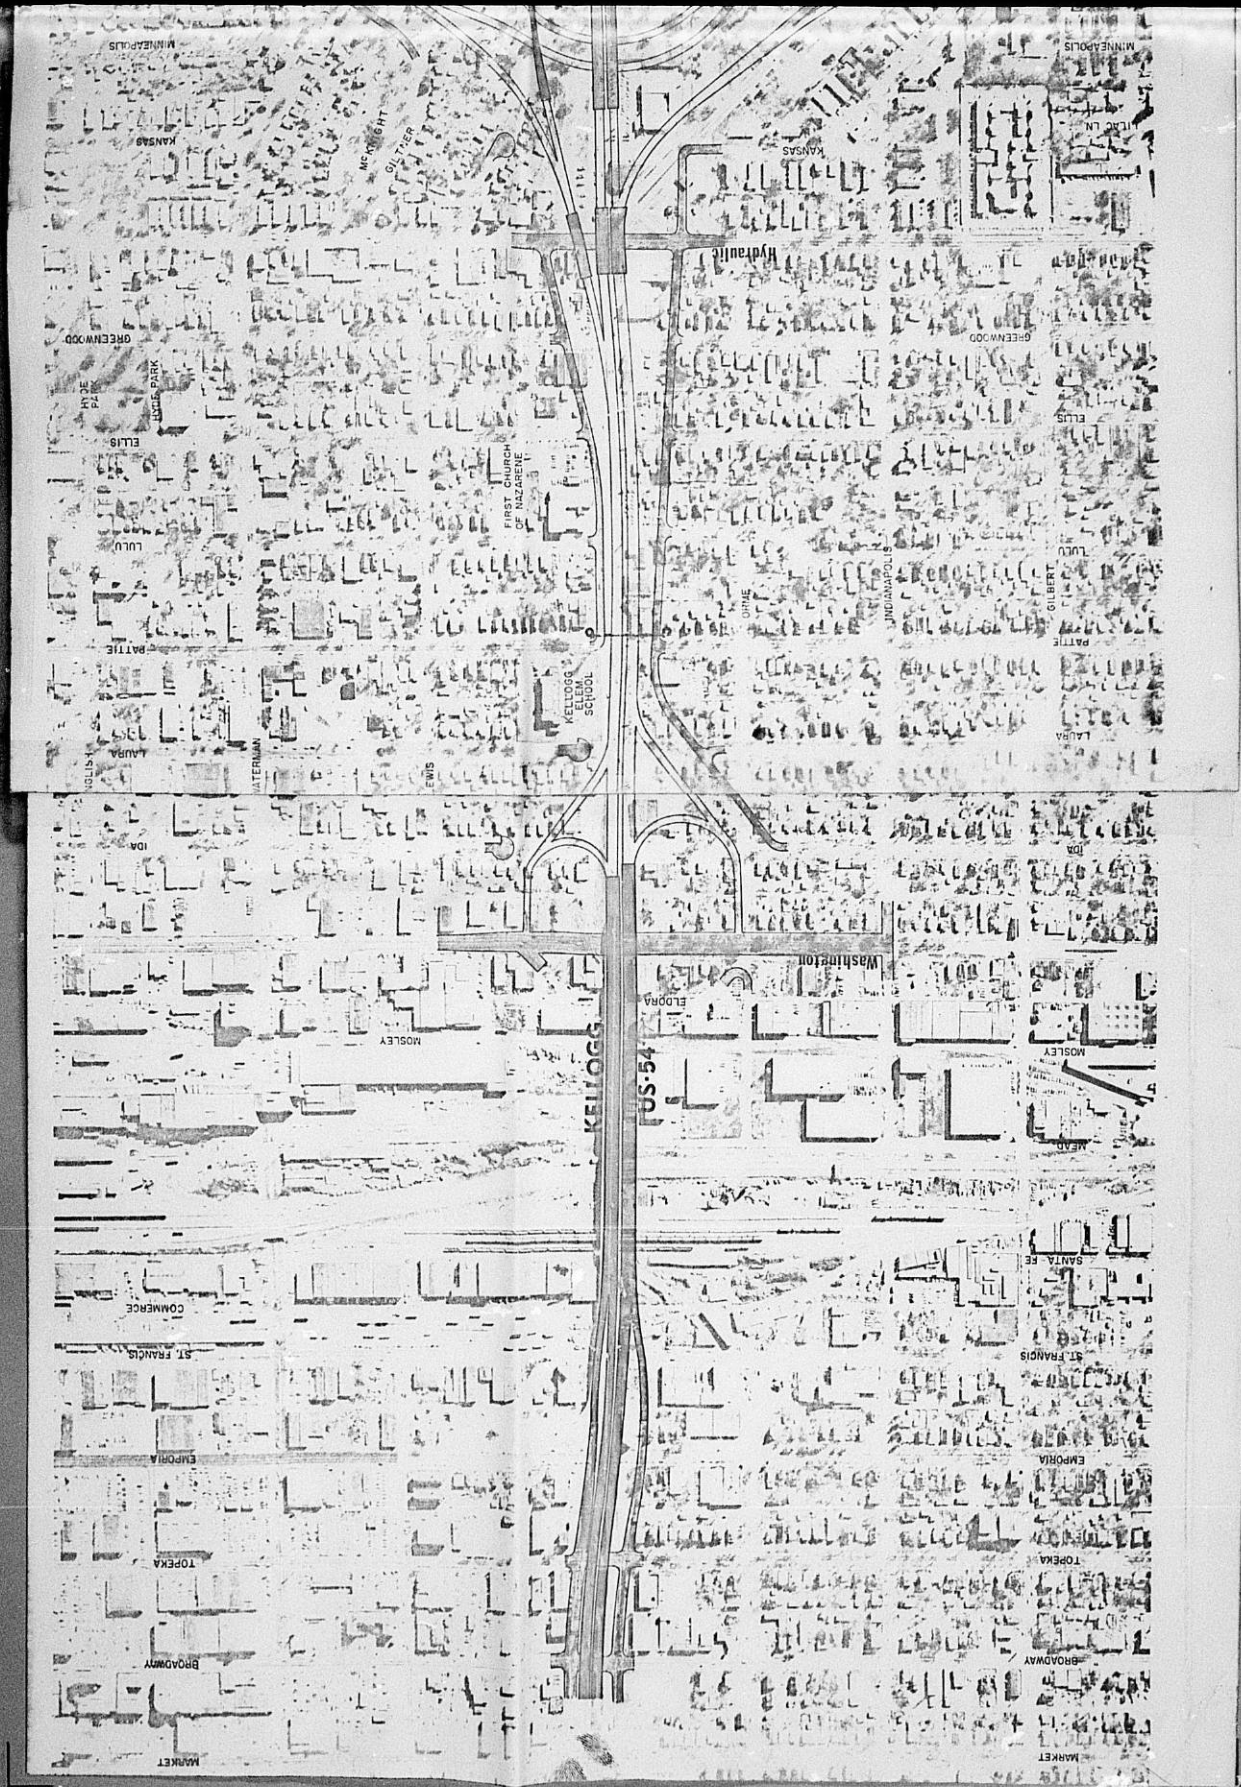 MINNEAPOLIS
MINNEAPOLIS
KANSAS
McKNIGHT
GILTNER
KANSAS
LILAC LN.
Hydraulic
GREENWOOD
GREENWOOD
HYDE
PARK
HYDE PARK
ELLIS
ELLIS
FIRST CHURCH
OF NAZARENE
LULU
LULU
INDIANAPOLIS
GILBERT
OHME
PATTIE
PATTIE
KELLOGG
ELEM.
SCHOOL
LAURA
LAURA
NGLISH
WATERMAN
EWIS
IDA
IDA
Washington
ELDORA
MOSLEY
MOSLEY
KELLOGG
US-54
MEAD
SANTA FE
COMMERCE
ST. FRANCIS
ST. FRANCIS
EMPORIA
EMPORIA
TOPEKA
TOPEKA
BROADWAY
BROADWAY
MARKET
MARKET